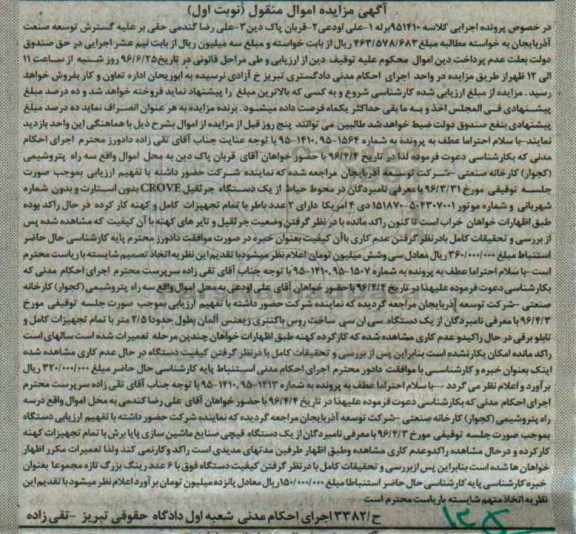 آگهی مزایده اموال منقول (نوبت اول)
در خصوص پرونده اجرایی کلاسه ۹۵۱۴۱۰ برله ۱-علی اودعی ۲-قربان پاک دین ۳-علی رضا گندمی حقی بر علیه گسترش توسعه صنعت
آذربایجان به خواسته مطالبه مبلغ ۴۶۳/۵۷۸/۶۸۳ ریال از بابت خواسته و مبلغ سه میلیون ریال از بابت نیم عشر اجرایی در حق صندوق
دولت بعلت عدم پرداخت دین اموال محکوم علیه توقیف دین از ارزیابی و طی مراحل قانونی در تاریخ ۹۶/۶/۲۵ روز شنبه از ساعت ۱۱
الی ۱۲ ظهر از طریق مزایده در واحد اجرای احکام مدنی دادگستری تبریز خ آزادی نرسیده به ابوریحان اداره تعاون و کار بفروش خواهد
رسید . مزایده از مبلغ ارزیابی شده کارشناسی شروع و به کسی که بالاترین مبلغ را پیشنهاد نماید فروخته خواهد شد و ده درصد مبلغ
پیشنهادی فی المجلس اخذ و به ما بقی حداکثر یکماه فرصت داده میشود . برنده مزایده به هر عنوان انصراف نماید ده درصد مبلغ
پیشنهادی بنفع صندوق دولت ضبط خواهد شد طالبین می توانند پنج روز قبل از مزایده از اموال بشرح ذیل با هماهنگی این واحد بازدید
نمایند -با سلام احتراما عطف به پرونده به شماره ۱۵۶۴-۹۵-۱۴۱۰-۹۵ با توجه عنایت جناب آقای تقی زاده دادورز محترم اجرای احکام
مدنی که بکارشناسی دعوت فرموده لذا در تاریخ ۹۶/۴/۲ با حضور خواهان آقای قربان پاک دین به محل اموال واقع سه راه پتروشیمی
(کجوار) کارخانه صنعتی -شرکت توسعه آذربایجان مراجعه شده که نماینده شرکت حضور داشته با تفهیم ارزیابی بموجب صورت
جلسه توقیفی مورخ ۹۶/۳/۳۱ با معرفی نامبردگان در محوط حیاط از یک دستگاه جرثقیل CROVE بدون استارت و بدون شماره
شهربانی و شماره موتور ۱۵۱۸۷۰۰۵۰۴۳۰۷۰۰۱ دی ۴ امریکا دارای ۲ عدد باطر با تمام تجهیزات کامل و کهنه کار کرده در حال راکد بوده
طبق اظهارات خواهان خراب است تا کنون راکد مانده با در نظر گرفتن وضعیت جرثقیل و تایر های کهنه با آن کیفیت که مشاهده شد پس
از بررسی و تحقیقات کامل بادرنظر گرفتن عدم کاری با آن کیفیت بعنوان خبره در صورت موافقت دادورز محترم پایه کارشناسی حال حاضر
استنباط مبلغ ۳۶۰/۰۰۰/۰۰۰ ریال معادل سی وشش میلیون تومان اعلام نظر میشود با تقدیم این نظریه اتخاذ تصمیم شایسته با ریاست محترم
است -با سلام احتراما عطف به پرونده به شماره ۱۵۰۷-۹۵-۱۴۱۰-۹۵ با توجه جناب آقای تقی زاده سرپرست محترم اجرای احکام مدنی که
بکارشناسی دعوت فرموده علیهذا در تاریخ ۹۶/۴/۲ با حضور خواهان آقای علی اودعی به محل اموال واقع سه راه پتروشیمی (کجوار) کارخانه
صنعتی -شرکت توسعه آذربایجان مراجعه گردیده که نماینده شرکت حضور داشته با تفهیم ارزیابی بموجب صورت جلسه توقیفی مورخ
۹۶/۴/۳ با معرفی نامبردگان از یک دستگاه سی ان سی ساخت روس باکنتری زیمنس آلمان بطول حدودا ۲/۵ متر با تمام تجهیزات کامل و
تابلو برقی در حال راکیدو عدم کاری مشاهده شده که کارکرده کهنه طبق اظهارات خواهان چندین مرحله تعمیرات شده است سالهای است
راکد مانده امکان بکار نشده است بنابراین پس از بررسی و تحقیقات کامل با درنظر گرفتن کیفیت دستگاه در حال عدم کاری مشاهده شده
اینک بعنوان خبره و کارشناسی با موافقت دادور محترم اجرای احکام مدنی استنباط پایه کارشناسی حال حاضر مبلغ ۳۲۰/۰۰۰/۰۰۰ ریال
برآورد و اعلام نظر می گردد —با سلام احتراما عطف به پرونده به شماره ۱۲۱۳-۹۵-۱۴۱۰-۹۵ با توجه جناب آقای تقی زاده سرپرست محترم
اجرای احکام مدنی که بکارشناسی دعوت فرموده علیهذا در تاریخ ۹۶/۴/۲ با حضور خواهان آقای علی رضا گندمی به محل اموال واقع درسه
راه پتروشیمی (کجوار) کارخانه صنعتی -شرکت توسعه آذربایجان مراجعه گردیده که نماینده شرکت حضور داشته با تفهیم ارزیابی دستگاه
بموجب صورت جلسه توقیفی مورخ ۹۶/۴/۳ با معرفی نامبردگان از یک دستگاه قیچی صنایع ماشین سازی پایا برش با تمام تجهیزات کهنه
کارکرده و درحال مشاهده راکدوعدم کاری مشاهده وطبق اظهار طرفین مدتهای مدیدی است راکد وکار نمی کند ولذا تعمیرات مکرر اظهار
خواهان ها شده است بنابراین پس از بررسی و تحقیقات کامل با در نظر گرفتن کیفیت دستگاه فوق با ۶ عدد رینگ بزرگ تازه مجموعا بعنوان
خبره کارشناسی پایه کارشناسی حال حاضر استنباطا مبلغ ۱۵۰/۰۰۰/۰۰۰ ریال معادل پانزده میلیون تومان برآورد اعلام نظر میشود با تقدیم این
نظریه اتخاذ متهم شایسته باریاست محترم است
ح/۳۳۸۲ اجرای احکام مدنی شعبه اول دادگاه حقوقی تبریز -تقی زاده